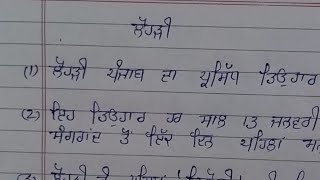 ਲੋਹੜੀ
(1) ਲੋਹੜੀ ਪੰਜਾਬ ਦਾ ਪ੍ਰਸਿੱਧ ਤਿਉਹਾਰ
(2) ਇਹ ਤਿਉਹਾਰ ਹਰ ਸਾਲ 13 ਜਨਵਰੀ
ਸੰਗਰਾਂਦ ਤੋਂ ਇੱਕ ਦਿਨ ਪਹਿਲਾਂ